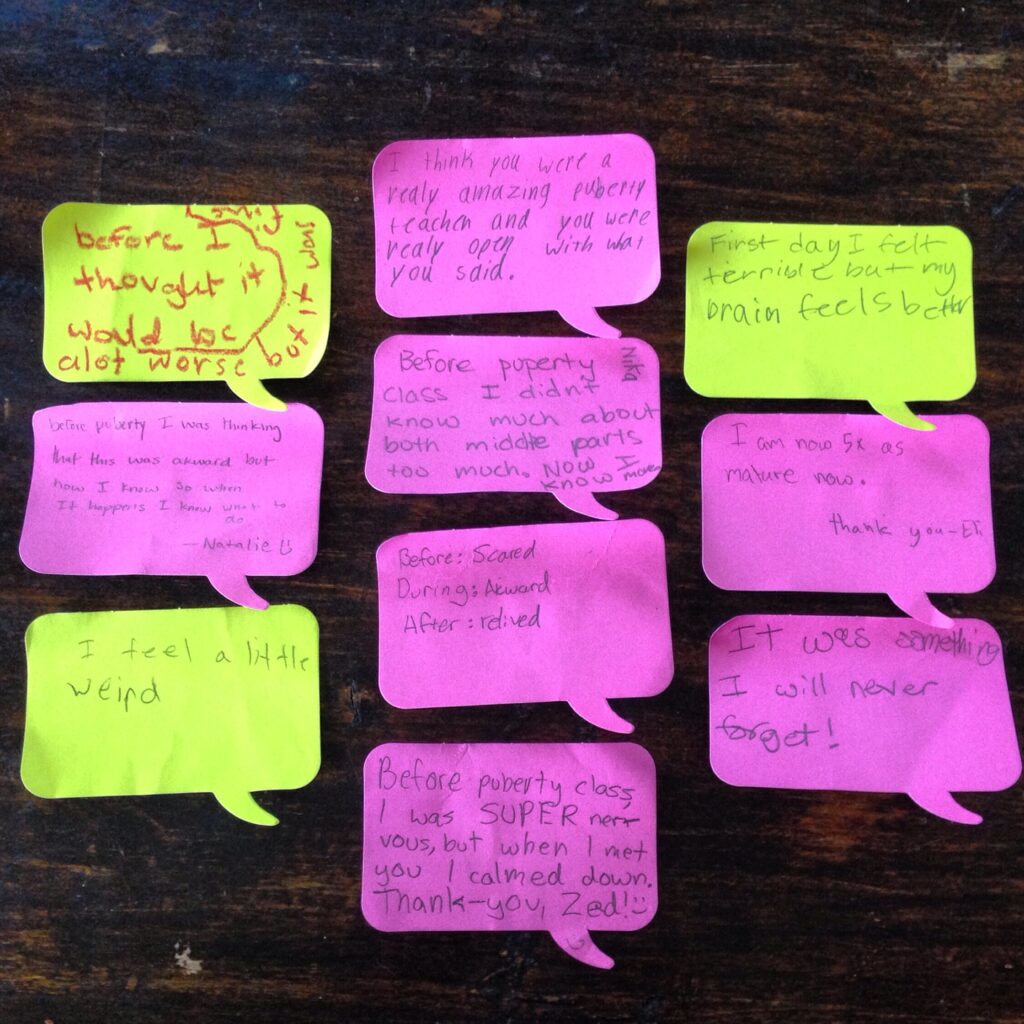 before I
thought it
would be
alot worse
but it wasn't
I think you were a
realy amazing puberty
teacher and you were
realy open with what
you said.
First day I felt
terrible but my
brain feels better
before puberty I was thinking
that this was akward but
now I know so when
It happens I know what to
do
—Natalie
Before puperty
class I didn't
know much about
both middle parts
too much. Now I
know more
Nika
I am now 5x as
mature now.
thank you-Eli
Before: Scared
During: Akward
After: relived
I feel a little
weird
It was something
I will never
forget!
Before puberty class,
I was SUPER ner-
vous, but when I met
you I calmed down.
Thank-you, Zed!